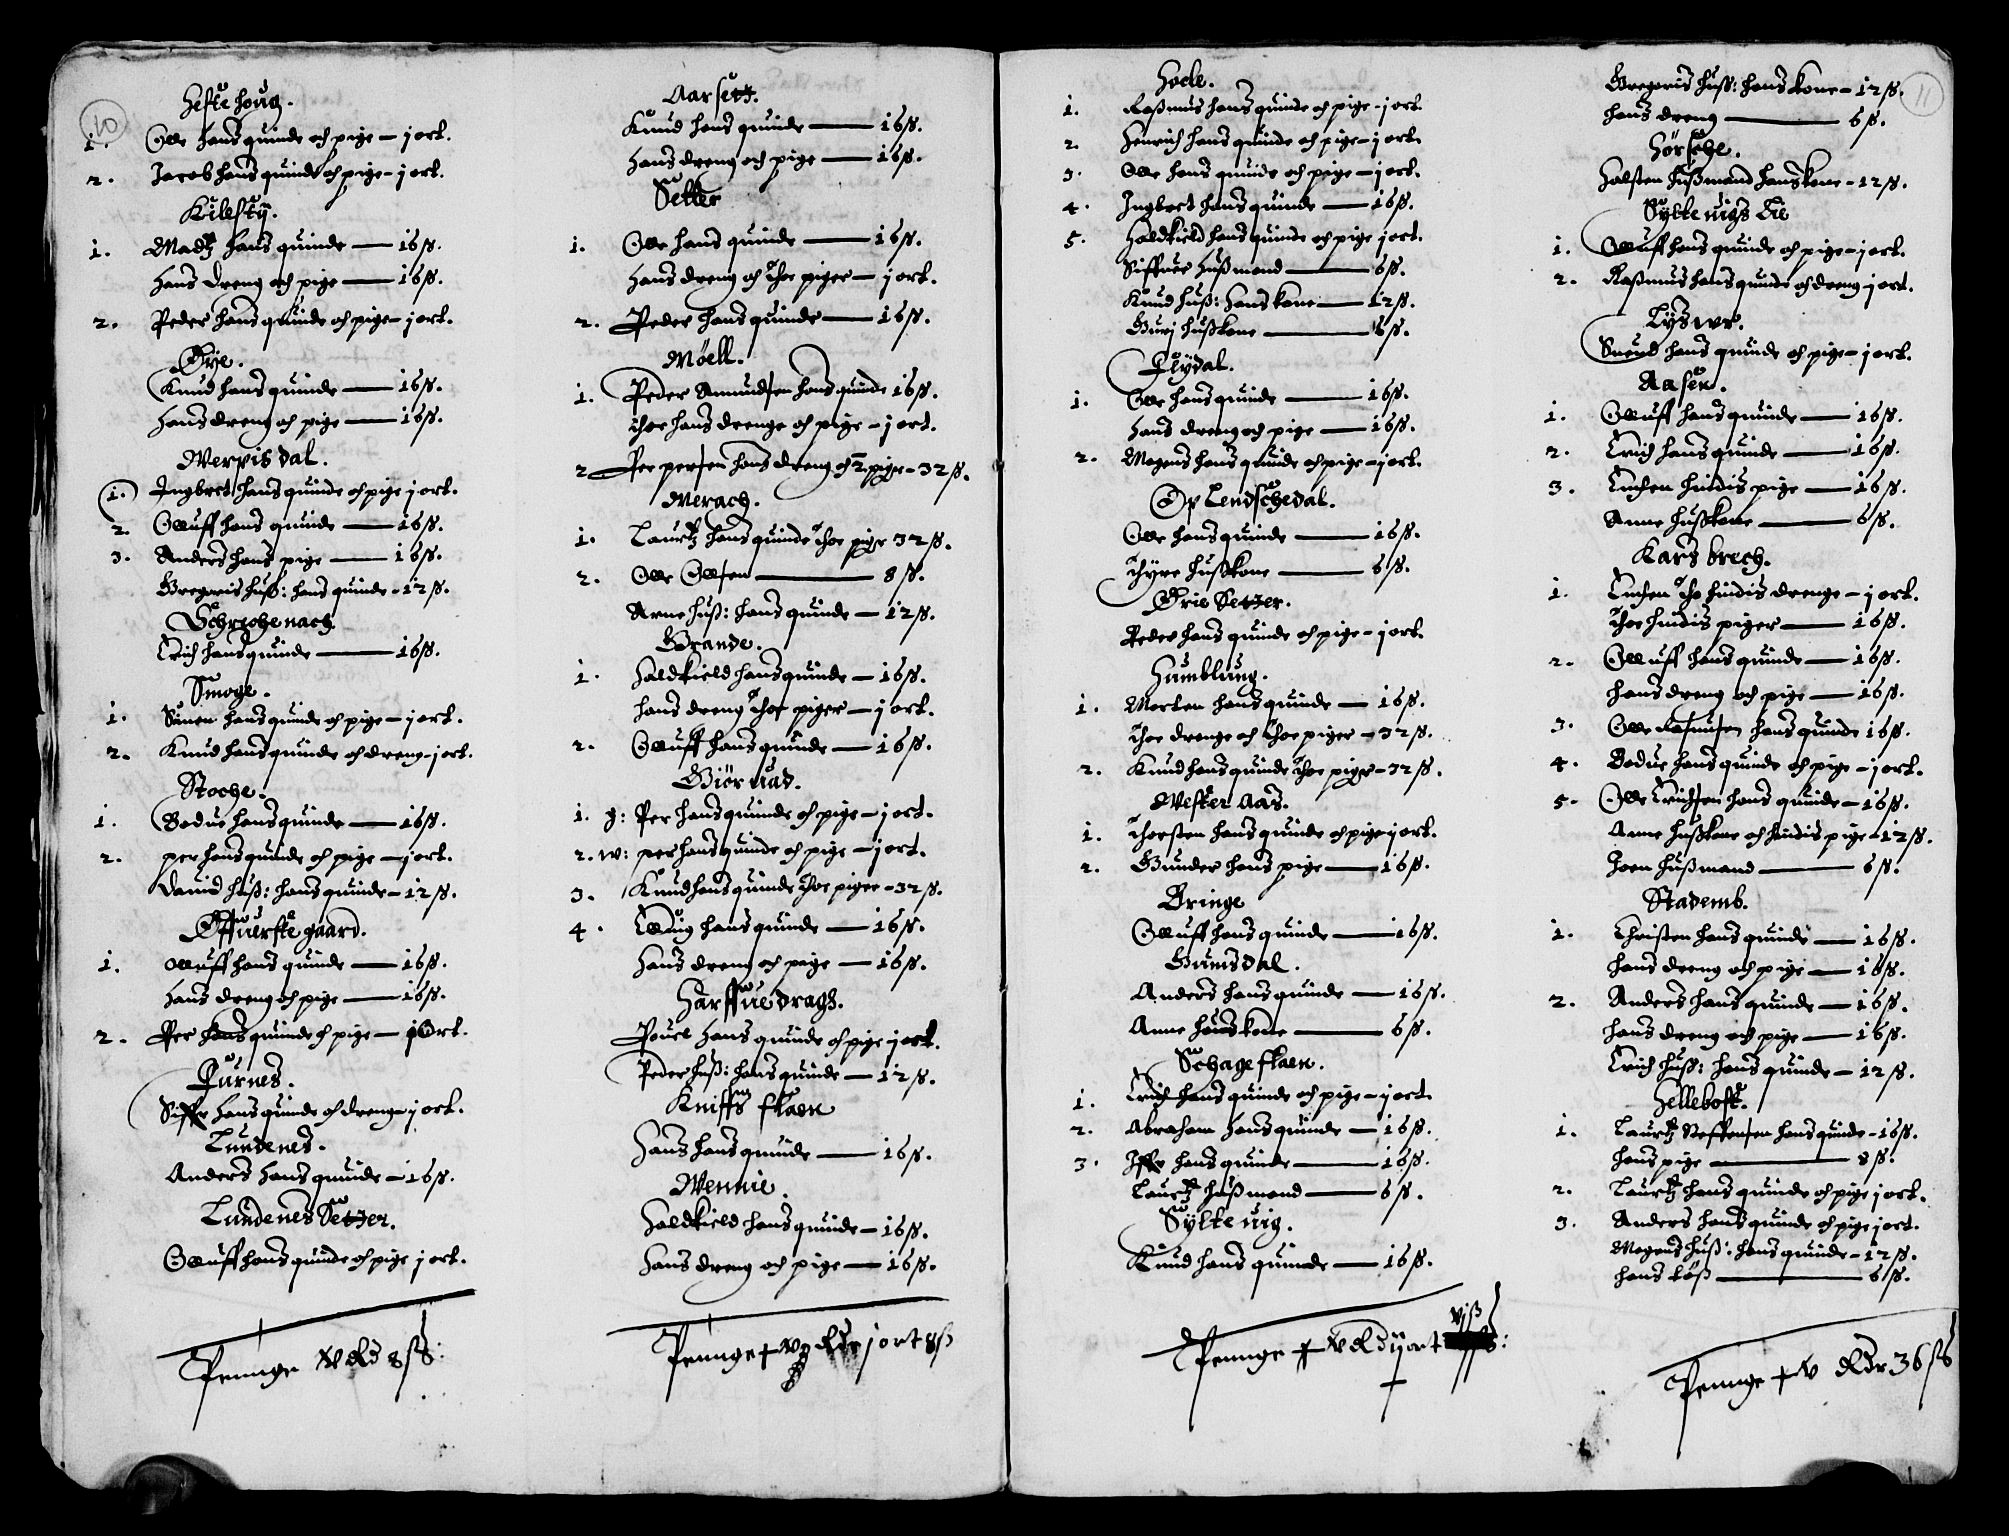 10
Heste houg.
1. Olle hans quinde och pige – j ort.
2. Jacob hans quinde och pige – j ort.
Kilsty.
1. Madtz hans quinde — 16 ß.
Hans dreng och pige — 16 ß.
2. Peder hans quinde och pige – j ort.
Øÿe.
Knud hans quinde — 16 ß.
Hans dreng och pige — 16 ß.
Werpis dal.
1. Ingbret hans quinde och pige j ort.
2. Olluff hans quinde — 16 ß.
3. Anders hans pige — 16 ß.
Gregoris huß: hans quinde – 12 ß.
Schrichenach
Erich hans quinde — 16 ß.
Smoge.
1. Simen hans quinde och pige – j ort.
2. Knud hans quinde och dreng – j ort.
Stoche.
1. Bodue hans quinde — 16 ß.
2. per hans quinde och pige – j ort.
David huß: hans quinde – 12 ß.
Øffuerste gaard.
1. olluff hans quinde — 16 ß.
Hans dreng och pige — 16 ß.
2. Per hans quinde och pige – j Ort.
Furnes.
Siffr hans quinde och dreng – j ort.
Lundenes.
Anders Hans quinde – 16 ß.
Lundenes Setzer.
Olluff hans quinde och pige j ort.
Penninge xv Rd 8 ß:
Aarsetz.
Knud hans quinde — 16 ß.
Hans dreng och pige — 16 ß.
Setter
1. Olle hans quinde — 16 ß.
Hans dreng och thoe piger – j ort.
2. Peder hans quinde — 16 ß.
Møell.
1. Peder Amundsen hans quinde 16 ß.
thoe hans drenge och pige – j ort.
2 Per persen hans dreng och 2 pige – 32 ß.
Merach.
1. Lauritz hans quinde thoe pige 32 ß.
2. Olle Ollsen — 8 ß.
Arne huß: hans quinde – 12 ß.
Grande.
1. Haldkield hans quinde – 16 ß.
hans dreng thoe piger – j ort.
2. Olluff hans quinde — 16 ß.
Giørnad.
1. g: Per hans quinde och pige – j ort.
2. w: per hans quinde och pige – j ort.
3. Knud hans quinde thoe piger – 32 ß.
4. Elling hans quinde – 16 ß.
Hans dreng och pige – 16 ß.
Harffue drags.
Pouel hans quinde och pige j ort.
Peder huß: hans quinde – 12 ß.
Kniffs flaen
Hans hans quinde — 16 ß.
Wennie.
Haldkield hans quinde – 16 ß.
Hans dreng och pige — 16 ß.
Penninge Rdr j ort 8 ß
Hoele.
1. Raßmus hans quinde och pige – j ort.
2. Henrich hans quinde och pige – j ort.
3. Olle hans quinde och pige – j ort.
4. Ingbret hans quinde — 16 ß.
5. Haldkield hans quinde och pige j ort.
Siffuer Hußmand — 6 ß.
Knud huß: Hans kone — 12 ß.
Gurj hußkone — 6 ß.
Flÿdal.
1. Olle hans quinde — 16 ß.
Hans dreng och pige — 16 ß.
2. Mogens hans quinde och pige – j ort.
Op Lendschedal.
Olle hans quinde — 16 ß.
Thyre hußkone — 6 ß.
Ørie Setzer.
Peder hans quinde och pige – j ort.
Humblung.
1. Morten hans quinde — 16 ß.
thoe drenge och thoe piger – 32 ß.
2. Knud hans quinde thoe piger – 32 ß.
Wester Aas.
1. Thorsten hans quinde och pige j ort.
2. Gunder hans pige — 16 ß.
Bringe
Olluff hans quinde — 16 ß.
Gumsdal.
Anders hans quinde — 16 ß.
Anne huuskone — 6 ß.
Schageflaen.
1. Erich hans quinde och pige – j ort.
2. Abraham hans quinde – 16 ß.
3. Iffr hans quinde — 16 ß.
Lauritz hußmand — 6 ß.
Sylte uig.
Knud hans quinde — 16 ß.
vj ß
Penninge xv Rd ij ort
11
Gregoris huß: hans kone – 12 ß.
hans dreng — 6 ß.
Hørsche.
Halsten hußmand hans kone – 12 ß.
Sylte uigs Eie
1. Olluff hans quinde och pige – j ort.
2. Raßmus hans quinde och dreng j ort.
Lyswr.
Suend hans quinde och pige – j ort.
Aasen.
1. Olluff hans quinde — 16 ß.
2. Erich hans quinde — 16 ß.
3. Enchen hindis pige — 16 ß.
Anne hußkone — 6 ß.
Karsbrech.
1. Enchen tho hindis drenge – j ort.
thoe hindis piger — 16 ß.
2. Olluff hans quinde — 16 ß.
hans dreng och pige — 16 ß.
3. Olle Rasmusen hans quinde 16 ß.
4. Bodue hans quinde och pige – j ort.
5. Olle Erichsen hans quinde – 16 ß.
Anne hußkone och hindis pige – 12 ß.
Joen hußmand — 6 ß.
Stademb.
1. Christen hans quinde — 16 ß.
hans dreng och pige — 16 ß.
2. Anders hans quinde — 16 ß.
hans dreng och pige — 16 ß.
Erich huß: hans quinde – 12 ß.
Hellebost.
1. Lauritz Steffensen hans quinde – 16 ß.
hans pige — 8 ß.
2. Lauritz hans quinde och pige j ort.
3. Anders hans quinde och pige j ort.
Mogens huß: hans quinde – 12 ß.
hans løß — 6 ß.
Penninge xv Rdr 36 ß